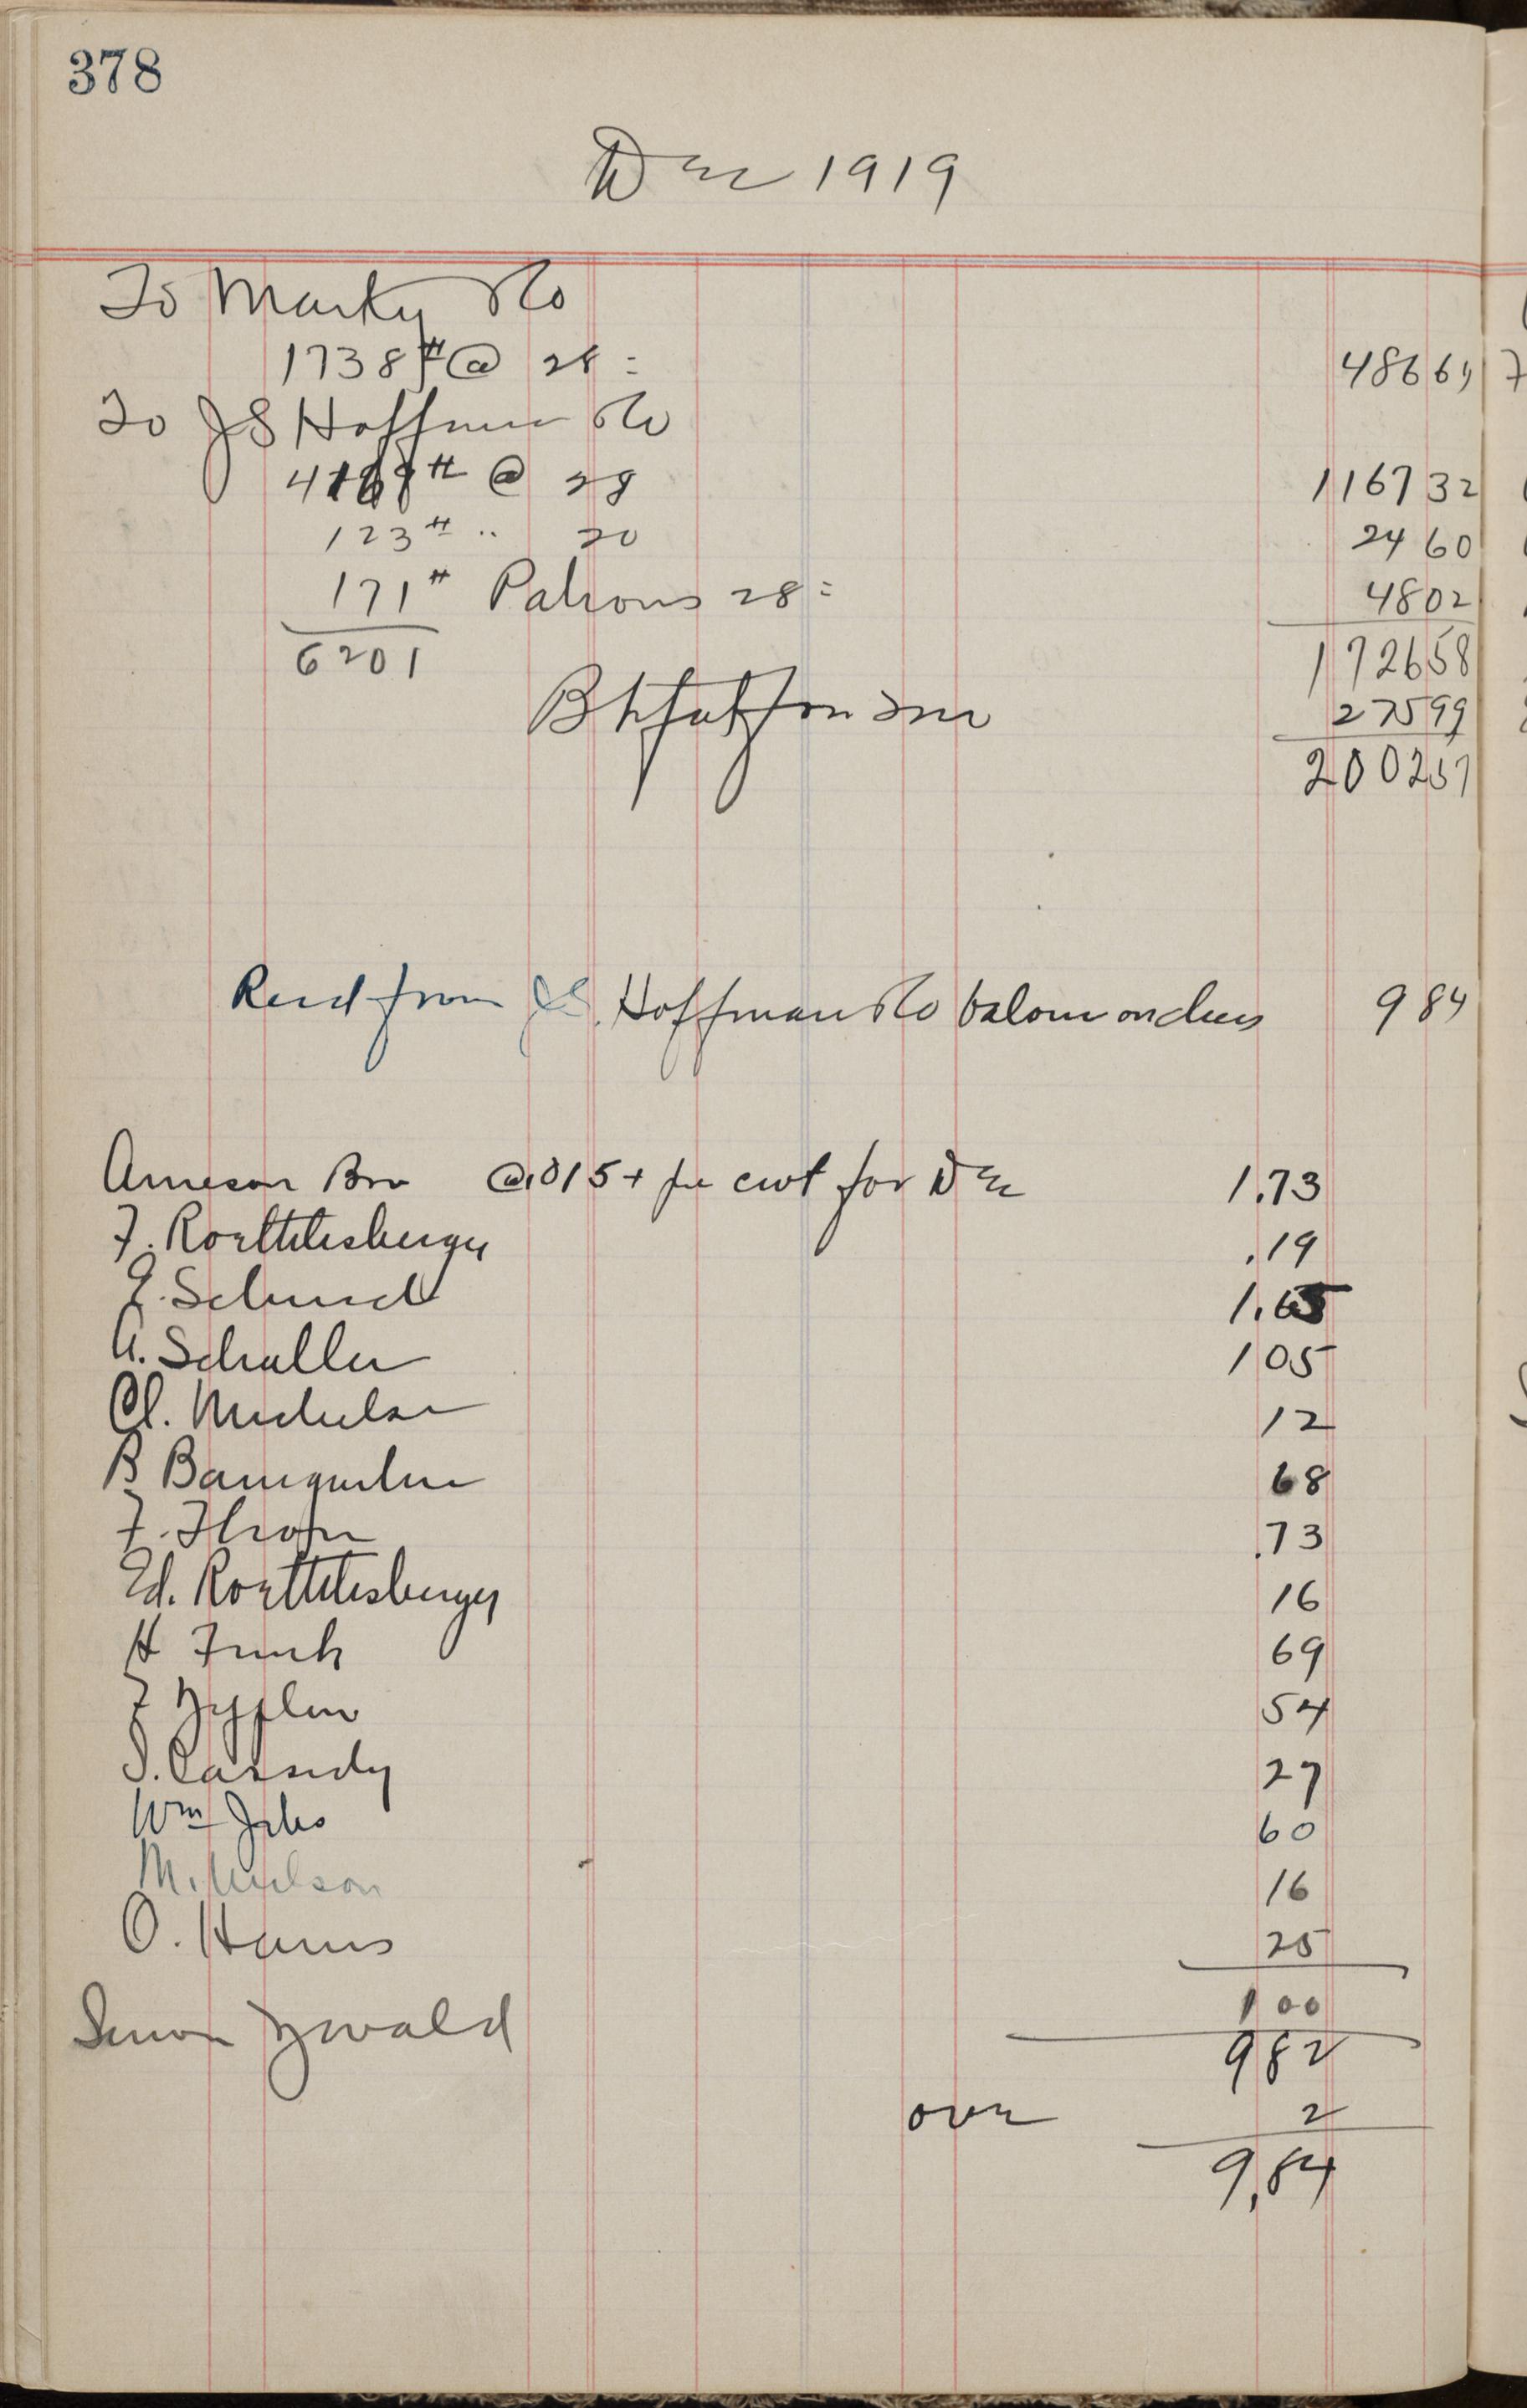 378
Dec 1919
To Marty Co
1738# @ 28 = 48664
To JS Hoffman Co
4169# @ 28 116732
123# " 20 2460
171# Patrons 28 = 4802
6201 172658
27599
200257
Recd from J.S. Hoffman Co balance on chees 984
Arneson Bro @ .015+ per cwt for Dec 1.73
F. Roethlisberger .19
E. Schmid 1.65
A. Schaller 105
Cl. Michelson 12
B Baumgartner 68
F. Thom 73
Ed. Roethlisberger 16
H Funk 69
F Zypflen 54
S. Cassidy 27
Wm Jobs 60
M. Nielson 16
O. Harris 25
Simon Zwald 100
982
over 2
9.84